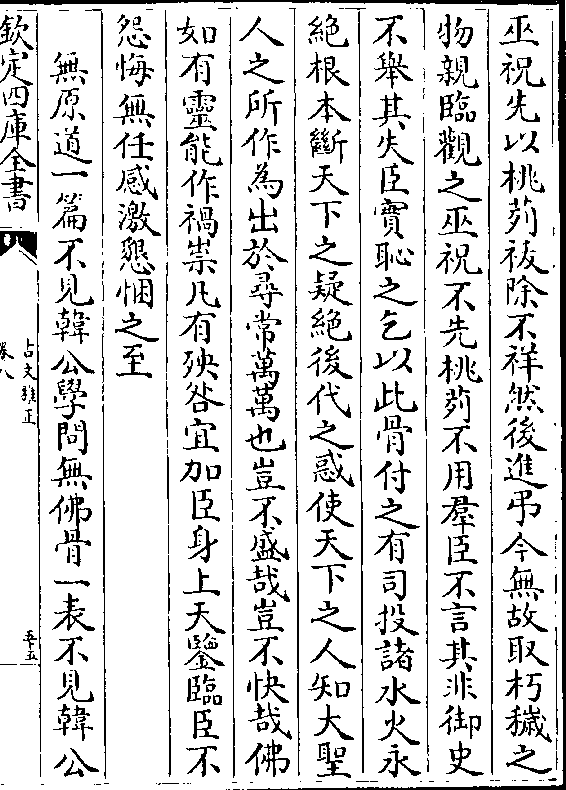 巫祝先以桃茢祓除不祥然後進弔今無故取朽穢之
物親臨觀之巫祝不先桃茢不用羣臣不言其非御史
不舉其失臣實恥之乞以此骨付之有司投諸水火永
絶根本斷天下之疑絶後代之惑使天下之人知大聖
人之所作為出於尋常萬萬也豈不盛哉豈不快哉佛
如有靈能作禍祟凡有殃咎宜加臣身上天鑒臨臣不
怨悔無任感激懇悃之至
無原道一篇不見韓公學問無佛骨一表不見韓公
欽定四庫全書
古文雅正
卷八
五十五